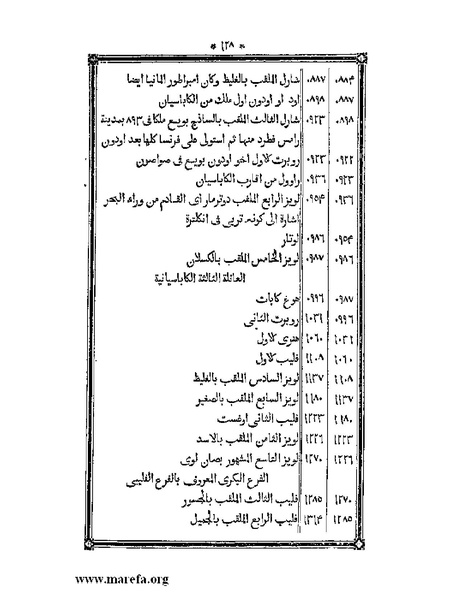 * ١٢٨ *
٠٨٨٤ ٠٨٨٧ شارل الملقب بالغليظ وكان امبراطور المانيا ايضا
٠٨٨٧ ٠٨٩٨ اود او اودون اول ملك من الكاباسيان
٠٨٩٨ ٠٩٢٣ شارل الثالث الملقب بالساذج بويع ملكا فى ٨٩٣ بمدينة
رامس فطرد منها ثم استولى على فرنسا كلها بعد اودون
٠٩٢٢ ٠٩٢٣ روبرت كلاول اخو اودون بويع فى صواصون
٠٩٢٣ ٠٩٣٦ راوول من اقارب الكاباسيان
٠٩٣٦ ٠٩٥٤ لويز الرابع الملقب دوترمار اى القادم من وراء البحر
اشارة الى كونه تربى فى انكلترة
٠٩٥٤ ٠٩٨٦ لوتار
٠٩٨٦ ٠٩٨٧ لويز الخامس الملقب بالكسلان
العائلة الثالثة الكاباسيانية
٠٩٨٧ ٠٩٩٦ هوغ كابات
٠٩٩٦ ١٠٣١ روبرت الثانى
١٠٣١ ١٠٦٠ هنرى كلاول
١٠٦٠ ١١٠٨ فليب كلاول
١١٠٨ ١١٣٧ لويز السادس الملقب بالغليظ
١١٣٧ ١١٨٠ لويز السابع الملقب بالصغير
١١٨٠ ١٢٢٣ فليب الثانى اوغست
١٢٢٣ ١٢٢٦ لويز الثامن الملقب بالاسد
١٢٢٦ ١٢٧٠ لويز التاسع المشهور بصان لوى
الفرع البكرى المعروف بالفرع الفليبى
١٢٧٠ ١٢٨٥ فليب الثالث الملقب بالجسور
١٢٨٥ ١٣١٤ فليب الرابع الملقب بالجميل
www.marefa.org